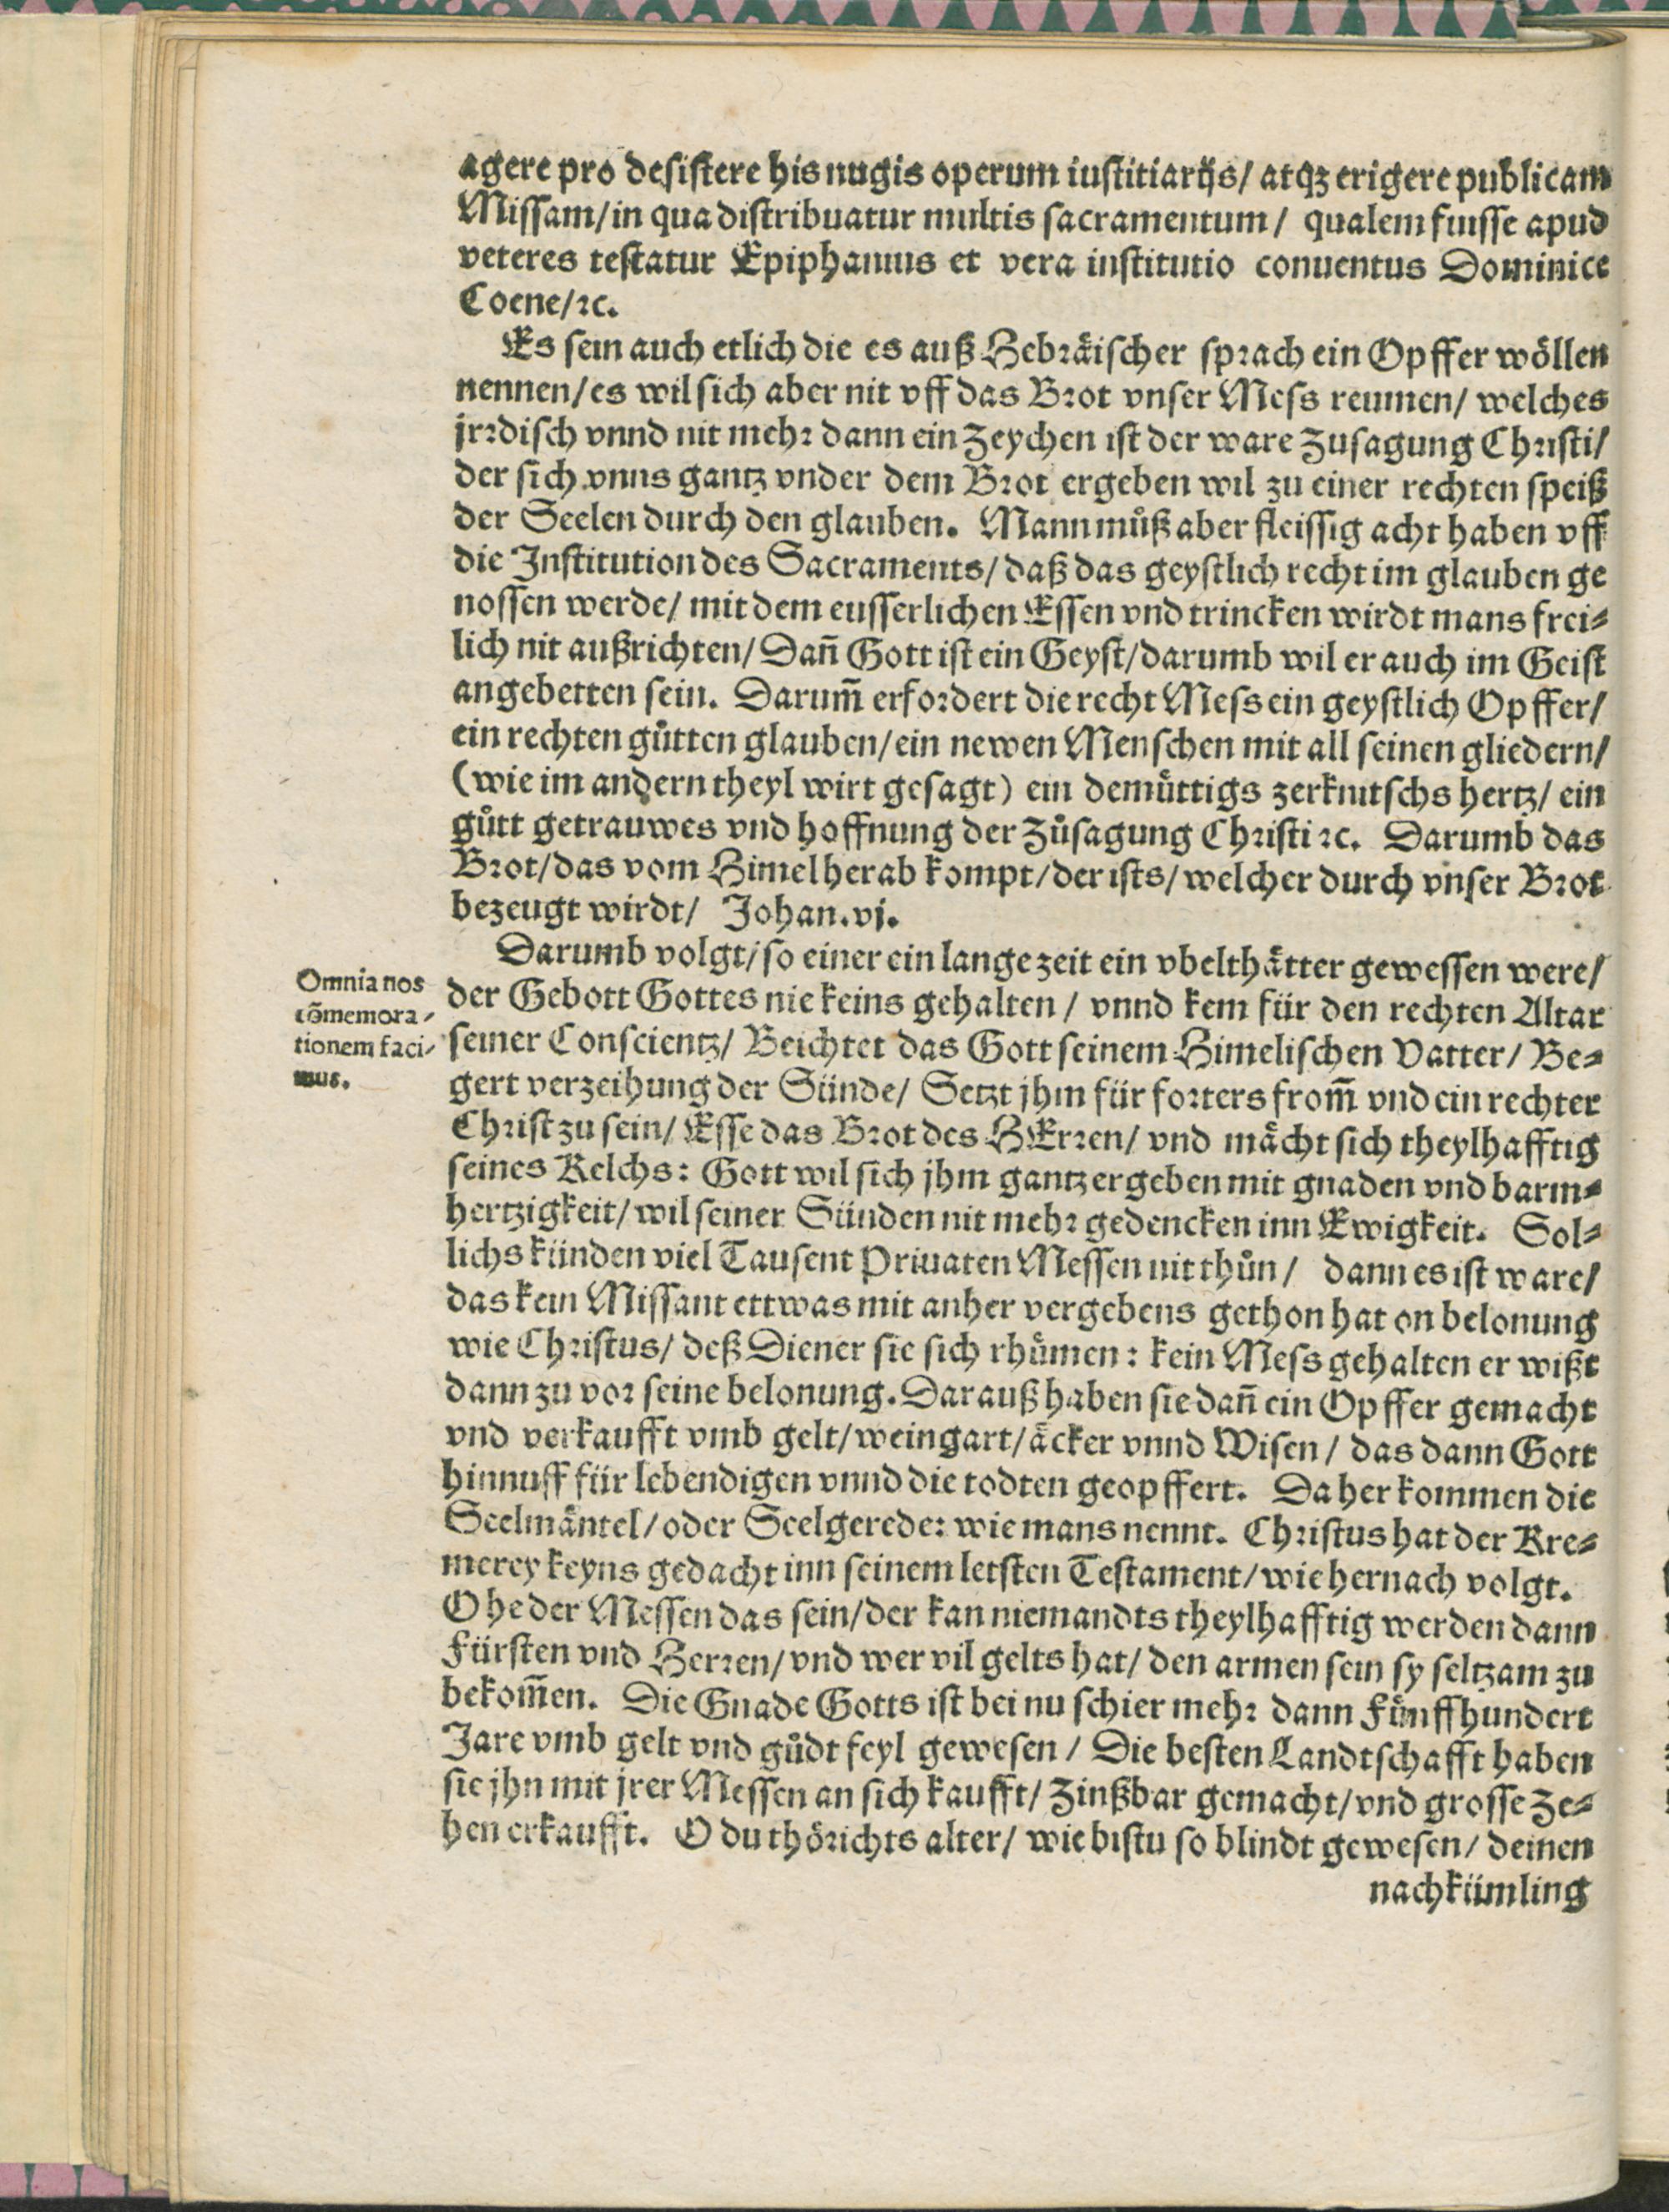 agere pro desistere his nugis operum iustitiarijs/ atqꝫ erigere publicam
Missam/ in qua distribuatur multis sacramentum/ qualem fuisse apud
veteres testatur Epiphanius et vera institutio conuentus Dominice
Coene/ ꝛc.
Es sein auch etlich die es auß Hebꝛäischer spꝛach ein Opffer wöllen
nennen/ es wil sich aber nit vff das Bꝛot vnser Mess reumen/ welches
jrꝛdisch vnnd nit mehꝛ dann ein Zeychen ist der ware Zusagung Chꝛisti/
der sich vnns gantz vnder dem Bꝛot ergeben wil zu einer rechten speiß
der Seelen durch den glauben. Mann můß aber fleissig acht haben vff
die Institution des Sacraments/ daß das geystlich recht im glauben ge
nossen werde/ mit dem eusserlichen Essen vnd trincken wirdt mans frei⸗
lich nit außrichten/ Dañ Gott ist ein Geyst/ darumb wil er auch im Geist
angebetten sein. Darum̃ erfoꝛdert die recht Mess ein geystlich Opffer/
ein rechten gůtten glauben/ ein newen Menschen mit all seinen gliedern/
(wie im andern theyl wirt gesagt) ein demüttigs zerknitschs hertz/ ein
gůtt getrauwes vnd hoffnung der Zůsagung Chꝛisti ꝛc. Darumb das
Bꝛot/ das vom Himel herab kompt/ der ists/ welcher durch vnser Bꝛot
bezeugt wirdt/ Johan. vj.
Darumb volgt/ so einer ein lange zeit ein vbelthätter gewessen were/
der Gebott Gottes nie keins gehalten/ vnnd kem für den rechten Altar
seiner Conscientz/ Beichtet das Gott seinem Himelischen Vatter/ Be⸗
gert verzeihung der Sünde/ Setzt jhm für foꝛters from̃ vnd ein rechter
Chꝛist zu sein/ Esse das Bꝛot des HErꝛen/ vnd mächt sich theylhafftig
seines Kelchs: Gott wil sich jhm gantz ergeben mit gnaden vnd barm⸗
hertzigkeit/ wil seiner Sünden nit mehꝛ gedencken inn Ewigkeit. Sol⸗
lichs künden viel Tausent Priuaten Messen nit thůn/ dann es ist ware/
das kein Missant ettwas mit anher vergebens gethon hat on belonung
wie Chꝛistus/ deß Diener sie sich rhümen: kein Mess gehalten er wißt
dann zu voꝛ seine belonung. Darauß haben sie dañ ein Opffer gemacht
vnd verkaufft vmb gelt/ weingart/ äcker vnnd Wisen/ das dann Gott
hinnuff für lebendigen vnnd die todten geopffert. Da her kommen die
Seelmäntel/ oder Seelgerede: wie mans nennt. Chꝛistus hat der Kre⸗
merey keyns gedacht inn seinem letsten Testament/ wie hernach volgt.
O he der Messen das sein/ der kan niemandts theylhafftig werden dann
Fürsten vnd Herꝛen/ vnd wer vil gelts hat/ den armen sein sy seltzam zu
bekom̃en. Die Gnade Gotts ist bei nu schier mehꝛ dann Fünffhundert
Jare vmb gelt vnd gůdt feyl gewesen/ Die besten Landtschafft haben
sie jhn mit jrer Messen an sich kaufft/ Zinßbar gemacht/ vnd grosse Ze⸗
hen erkaufft. O du thöꝛichts alter/ wie bistu so blindt gewesen/ deinen
nachkümling
Omnia nos
cõmemora-
tionem faci-
mus.